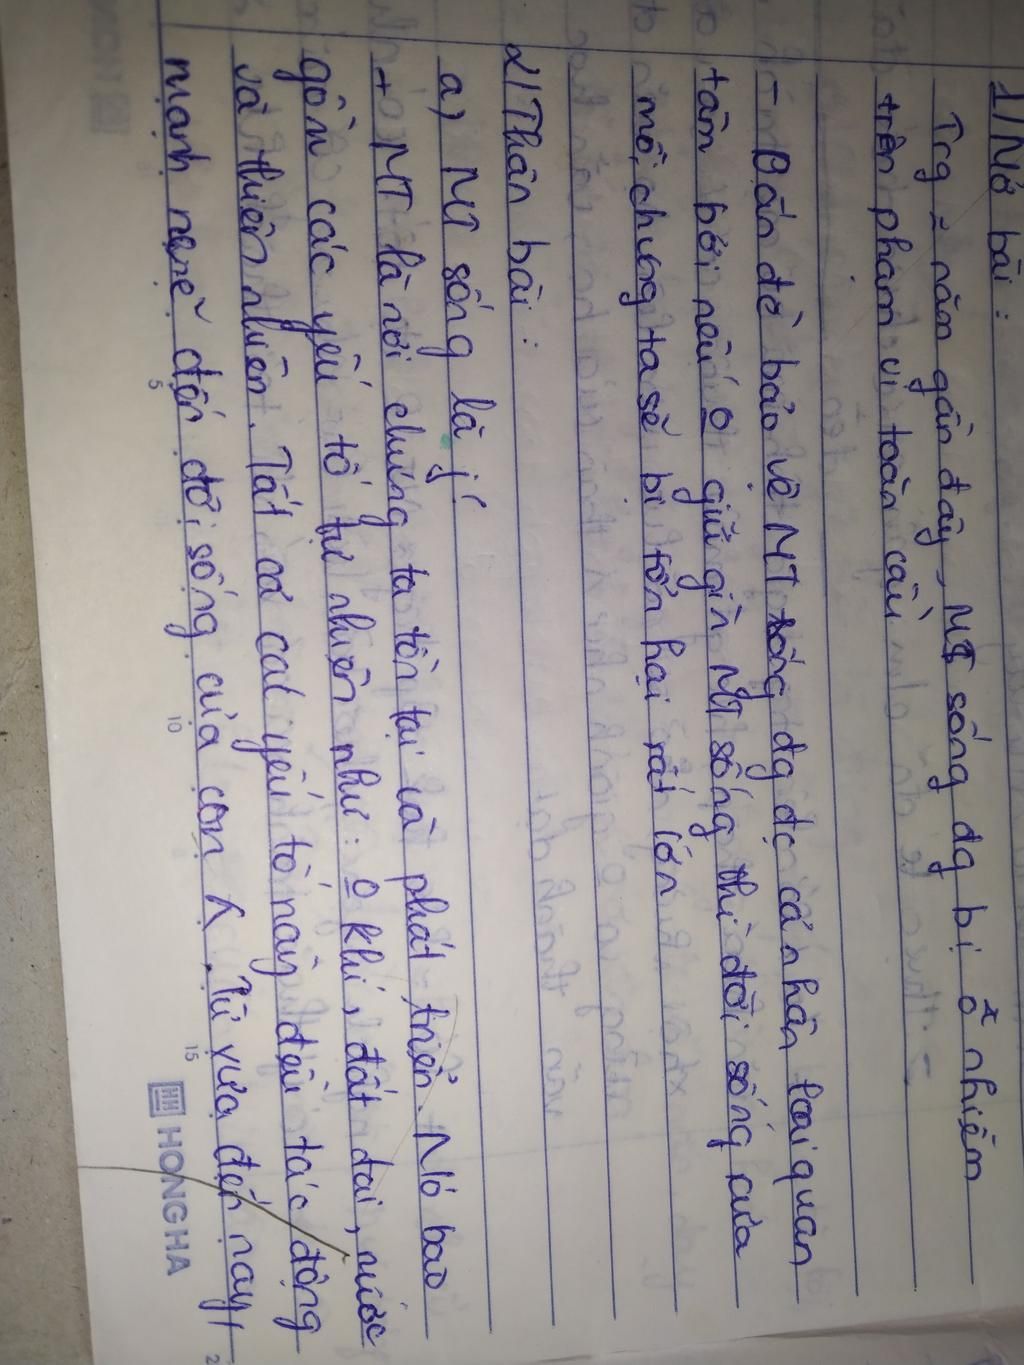 1/ Mở bài :
Trg ~ năm gần đây, MT sống dg bị ô nhiễm
trên phạm vi toàn cầu
- Bấn đề bảo vệ MT sống dg đc cả nhân loại quan
tâm bởi nếu o giữ gìn MT sống thì đời sống của
mỗi chúng ta sẽ bị tổn hại rất lớn
2/ Thân bài :
a) MT sống là j
+ MT là nơi chúng ta tồn tại và phát triển. Nó bao
gồm các yếu tố tự nhiên như : o khí, đất đai, nước
và thiên nhiên. Tất cả các yếu tố này đều tác động
mạnh mẽ đến đời sống của con . Từ xưa đến nay,
5 10 15
HONG HA